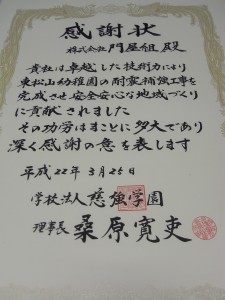 感謝状
株式会社 門屋組 殿
貴社は卓越した技術力により
東松山幼稚園の耐震補強工事を
完成させ安全安心な地域づくり
に貢献されました
その功労はまことに多大であり
深く感謝の意を表します
平成22年3月25日
学校法人 慈強学園
理事長 桑原寛吏